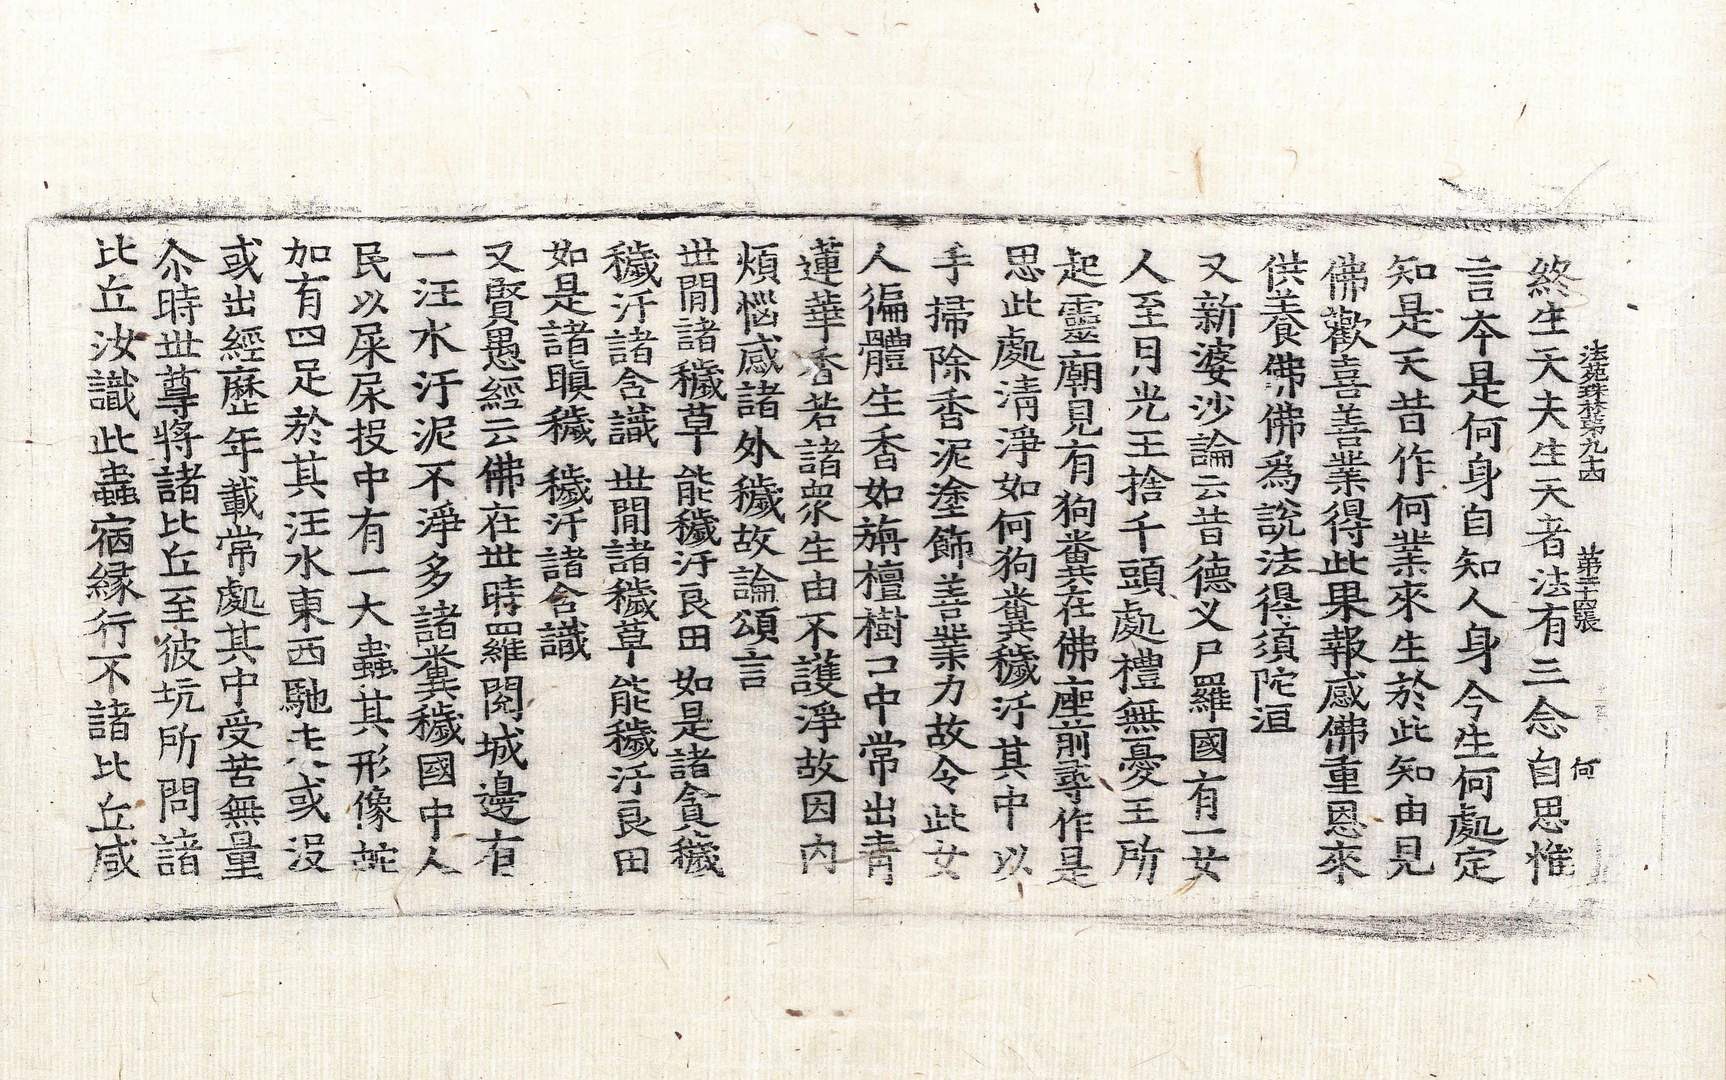 法苑珠林第九十四 第二十四張 何
終生天夫生天者法有三念自思惟
言本是何身自知人身今生何處定
知是天昔作何業來生於此知由見
佛歡喜善業得此果報感佛重恩來
供養佛佛爲說法得湏陀洹
又新婆沙論云昔德义尸羅國有一女
人至月光王捨千頭處禮無憂王所
起靈廟見有狗糞在佛座前尋作是
思此處清淨如何狗糞穢汙其中以
手掃除香泥塗飾善業力故令此女
人徧體生香如旃檀樹口中常出青
蓮華香若諸衆生由不護淨故因內
煩惱感諸外穢故論頌言
世閒諸穢草 能穢汙良田 如是諸貪穢
穢汙諸含識 世閒諸穢草 能穢汙良田
如是諸瞋穢 穢汙諸含識
又賢愚經云佛在世時羅閱城邊有
一汪水汙泥不淨多諸糞穢國中人
民以屎尿投中有一大蟲其形像蛇
加有四足於其汪水東西馳走或沒
或出經歷年載常處其中受苦無量
尒時世尊將諸比丘至彼坑所問諸
比丘汝識此蟲宿緣行不諸比丘咸